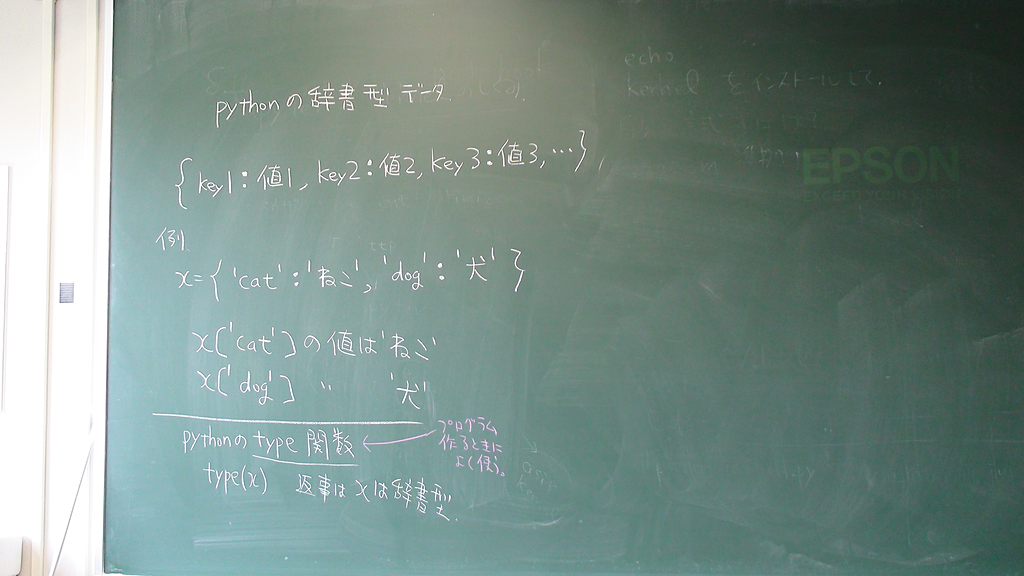 pythonの辞書型データ
{key1:値1, key2:値2, key3:値3, …},
例
x={'cat':'ねこ', 'dog':'犬'}
x['cat']の値は'ねこ'
x['dog'] 〃 '犬'
pythonのtype関数
プログラム
作るときに
よく使う。
type(x) 返事はxは辞書型.
echo
kernelをインストールして.
EPSON